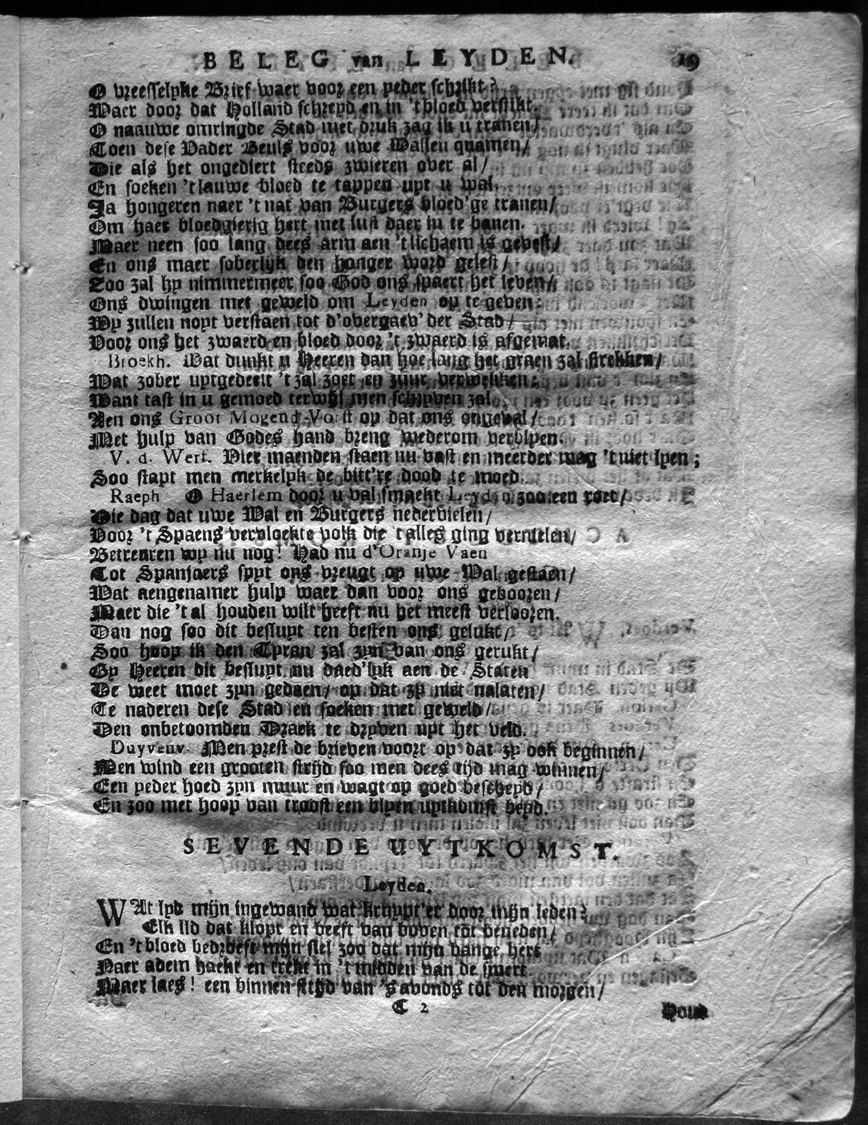 BELEG van LEYDEN. 19
O vreesselyke Brief waer voor een yeder schrikt?
Waer door dat Holland schreyd en in 't bloed verstikt.
O naauwe omringde Stad met druk zag ik u tranen/
Toen dese Vader Beuls voor uwe Wallen quamen/
Die als het ongediert steeds zwieren over al/
En soeken 't lauwe bloed te tappen uyt u wal.
Ja hongeren naer 't nat van Burgers bloed'ge tranen/
Om haer bloedgierig hert met lust daer in te banen.
Maer neen soo lang dees arm aen 't lichaem is gevest/
En ons maer soberlijk den honger word gelest/
Zoo zal hy nimmermeer soo God ons spaert het leven/
Ons dwingen met geweld om Leyden op te geven:
Wy zullen noyt verstaen tot d'overgaev' der Stad/
Voor ons het zwaerd en bloed door 't zwaerd is afgemat.
Broekh. Wat dunkt u Heeren dan hoe lang het graen zal strekken/
Wat zober uytgedeelt 't zal zoet en zuur verwekken:
Want tast in u gemoed terwijl men schryven zal
Aen ons Groot Mogend Vorst op dat ons ongeval/
Met hulp van Godes hand breng wederom verblyen.
V. d. Werf. Vier maenden staen nu vast en meerder mag 't niet lyen;
Soo stapt men merkelyk de bitt're dood te moed.
Raeph O Haerlem door u val smaekt Leyden zoo een roet/
Die dag dat uwe Wal en Burgers nedervielen/
Door 't Spaens vervloekte volk die 't alles ging vernielen/
Betreuren wy nu nog! Had nu d'Oranje Vaen
Tot Spanjaers spyt ons vreugt op uwe Wal gestaen/
Wat aengenamer hulp waer dan voor ons gebooren/
Maer die 't al houden wilt heeft nu het meest verlooren.
Dan nog soo dit besluyt ten besten ons gelukt/
Soo hoop ik den Tyran zal zyn van ons gerukt/
Gy Heeren dit besluyt nu daed'lyk aen de Staten
De weet moet zyn gedaen/ op dat zy niet nalaten/
Te naderen dese Stad en soeken met geweld/
Den onbetoomden Draek te dryven uyt het veld.
Duyvenv. Men prest de brieven voort op dat zy ook beginnen/
Men wind een grooten strijd soo men dees tijd mag winnen/
Een yeder hoed zyn muur en wagt op goed bescheyd/
En zoo met hoop van troost een blyen uytkomst beyd.
SEVENDE UYTKOMST.
Leyden.
WAt lyd mijn ingewand wat krupt'er door mijn leden?
Elk lid dat klopt en beeft van boven tot beneden/
En 't bloed bedroeft mijn siel zoo dat mijn bange hert
Naer adem haekt en trekt in 't midden van de smert.
Maer laes! een binnen strijd van 's avonds tot den morgen/
C 2